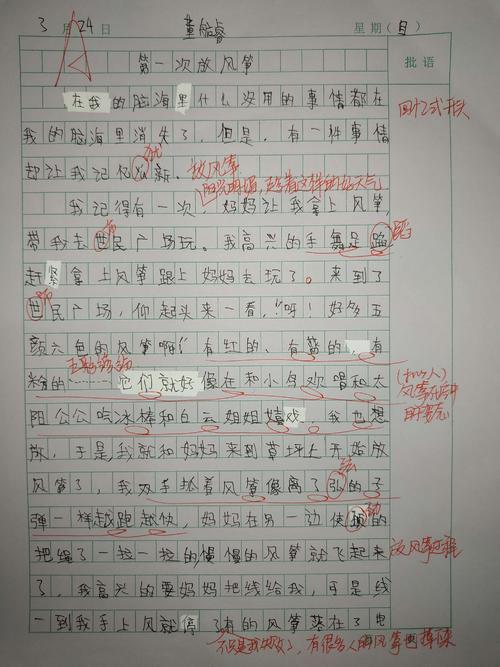 3月24日 童皓睿 星期(日)
第一次放风筝 批语
在我的脑海里什么没用的事情都在 回忆式开头
我的脑海里消失了，但是，有一件事情
却让我记忆犹新。放风筝
阳光明媚，趁着这样的好天气
我记得有一次，妈妈让我拿上风筝，
带我去世民广场玩。我高兴的手舞足蹈 蹈
市
赶紧拿上风筝跟上妈妈去玩了。来到了
世民广场，仰起头来一看，"呀！好多五 市
颜六色的风筝啊！"有红的、有蓝的、有
五彩缤纷
粉的……它们就好像在和小鸟欢唱和太 (拟人)
阳公公吃冰棒和白云姐姐嬉戏。我也想
放，于是我就和妈妈来到草坪上开始放
风筝了，我双手抬着风筝像离了弘的子 弦
弹一样越跑越快，妈妈在另一边使颈的 劲
把绳子一拉一拉的慢慢的风筝就飞起来 放风筝过程
了，我高兴的要妈妈把线给我，可是线
一到我手上风就停了有的风筝落在了电
不只是我的风筝，有很多人的风筝也掉下来